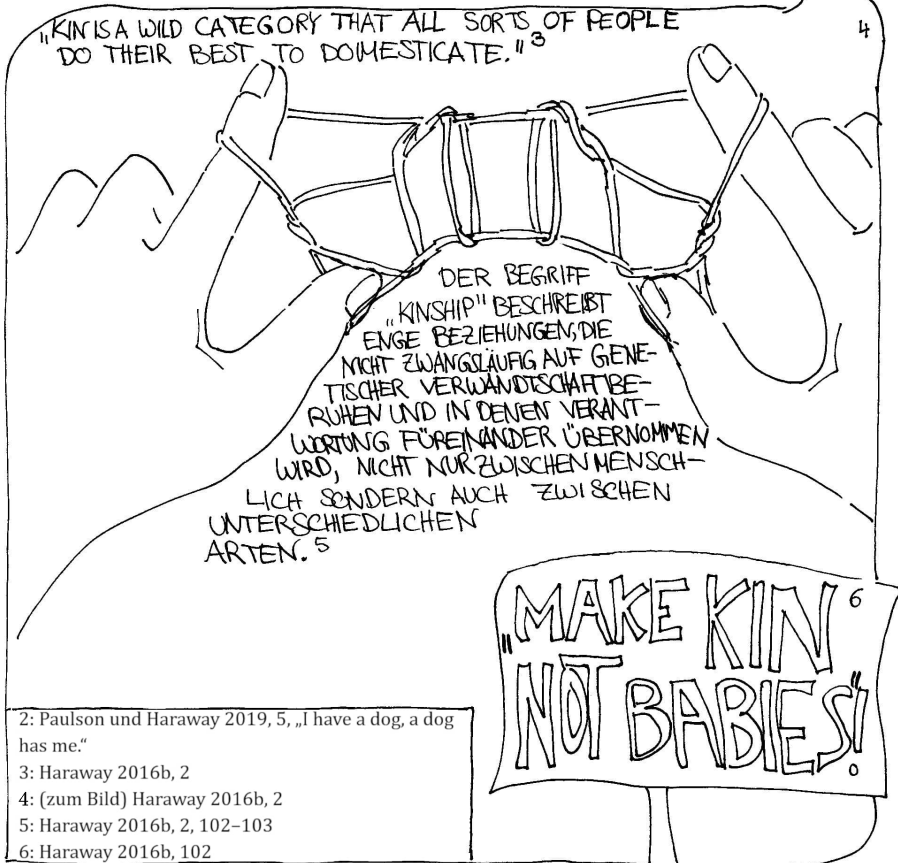 „KIN IS A WILD CATEGORY THAT ALL SORTS OF PEOPLE
DO THEIR BEST TO DOMESTICATE."3
4
DER BEGRIFF
„KINSHIP" BESCHREIBT
ENGE BEZIEHUNGEN, DIE
NICHT ZWANGSLÄUFIG AUF GENE-
TISCHER VERWANDTSCHAFT BE-
RUHEN UND IN DENEN VERANT-
WORTUNG FÜREINANDER ÜBERNOMMEN
WIRD, NICHT NUR ZWISCHEN MENSCH-
LICH SONDERN AUCH ZWISCHEN
UNTERSCHIEDLICHEN
ARTEN.5
„MAKE KIN 6
NOT BABIES"!
2: Paulson und Haraway 2019, 5, „I have a dog, a dog
has me.“
3: Haraway 2016b, 2
4: (zum Bild) Haraway 2016b, 2
5: Haraway 2016b, 2, 102–103
6: Haraway 2016b, 102